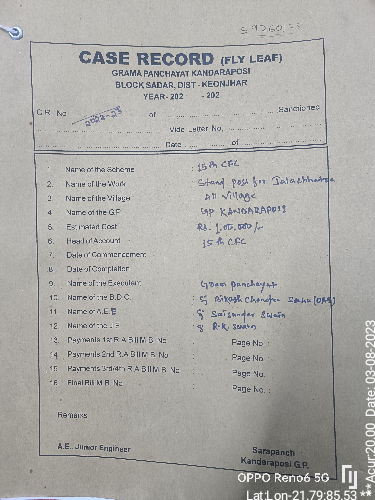 CASE RECORD (FLY LEAF)
GRAMA PANCHAYAT KANDARAPOSI
BLOCK SADAR, DIST - KEONJHAR
YEAR- 202 -202
C.R. No of Sanctioned
Vide Letter No.
Date of
1. Name of the Scheme : 15th CFC
2. Name of the Work : Stand post for Jalachhatra
3. Name of the Village : All village
4. Name of the G.P. : GP KANDARAPOSI
5. Estimated Cost : Rs. 1,00,000/-
6. Head of Account : 15th CFC
7. Date of Commencement
8. Date of Completion
9. Name of the Executent : Gram panchayat
10. Name of the B.D.O. : Bikash Chandra
11. Name of A.E.E : Swain
12. Name of the J.E : R.K. Swain
13. Payments 1st R.A Bill M.B. No Page No :
14. Payments 2nd R.A Bill M.B. No Page No :
15. Payments 3rd/4th R.A Bill M.B. No Page No :
16. Final Bill M.B. No Page No. :
Remarks
A.E., Junior Engineer
Sarapanch
Kandaraposi G.P.
OPPO Reno6 5G
Lat:Lon-21.79:85.53
**Acur:20.00, Date: 03-08-2023